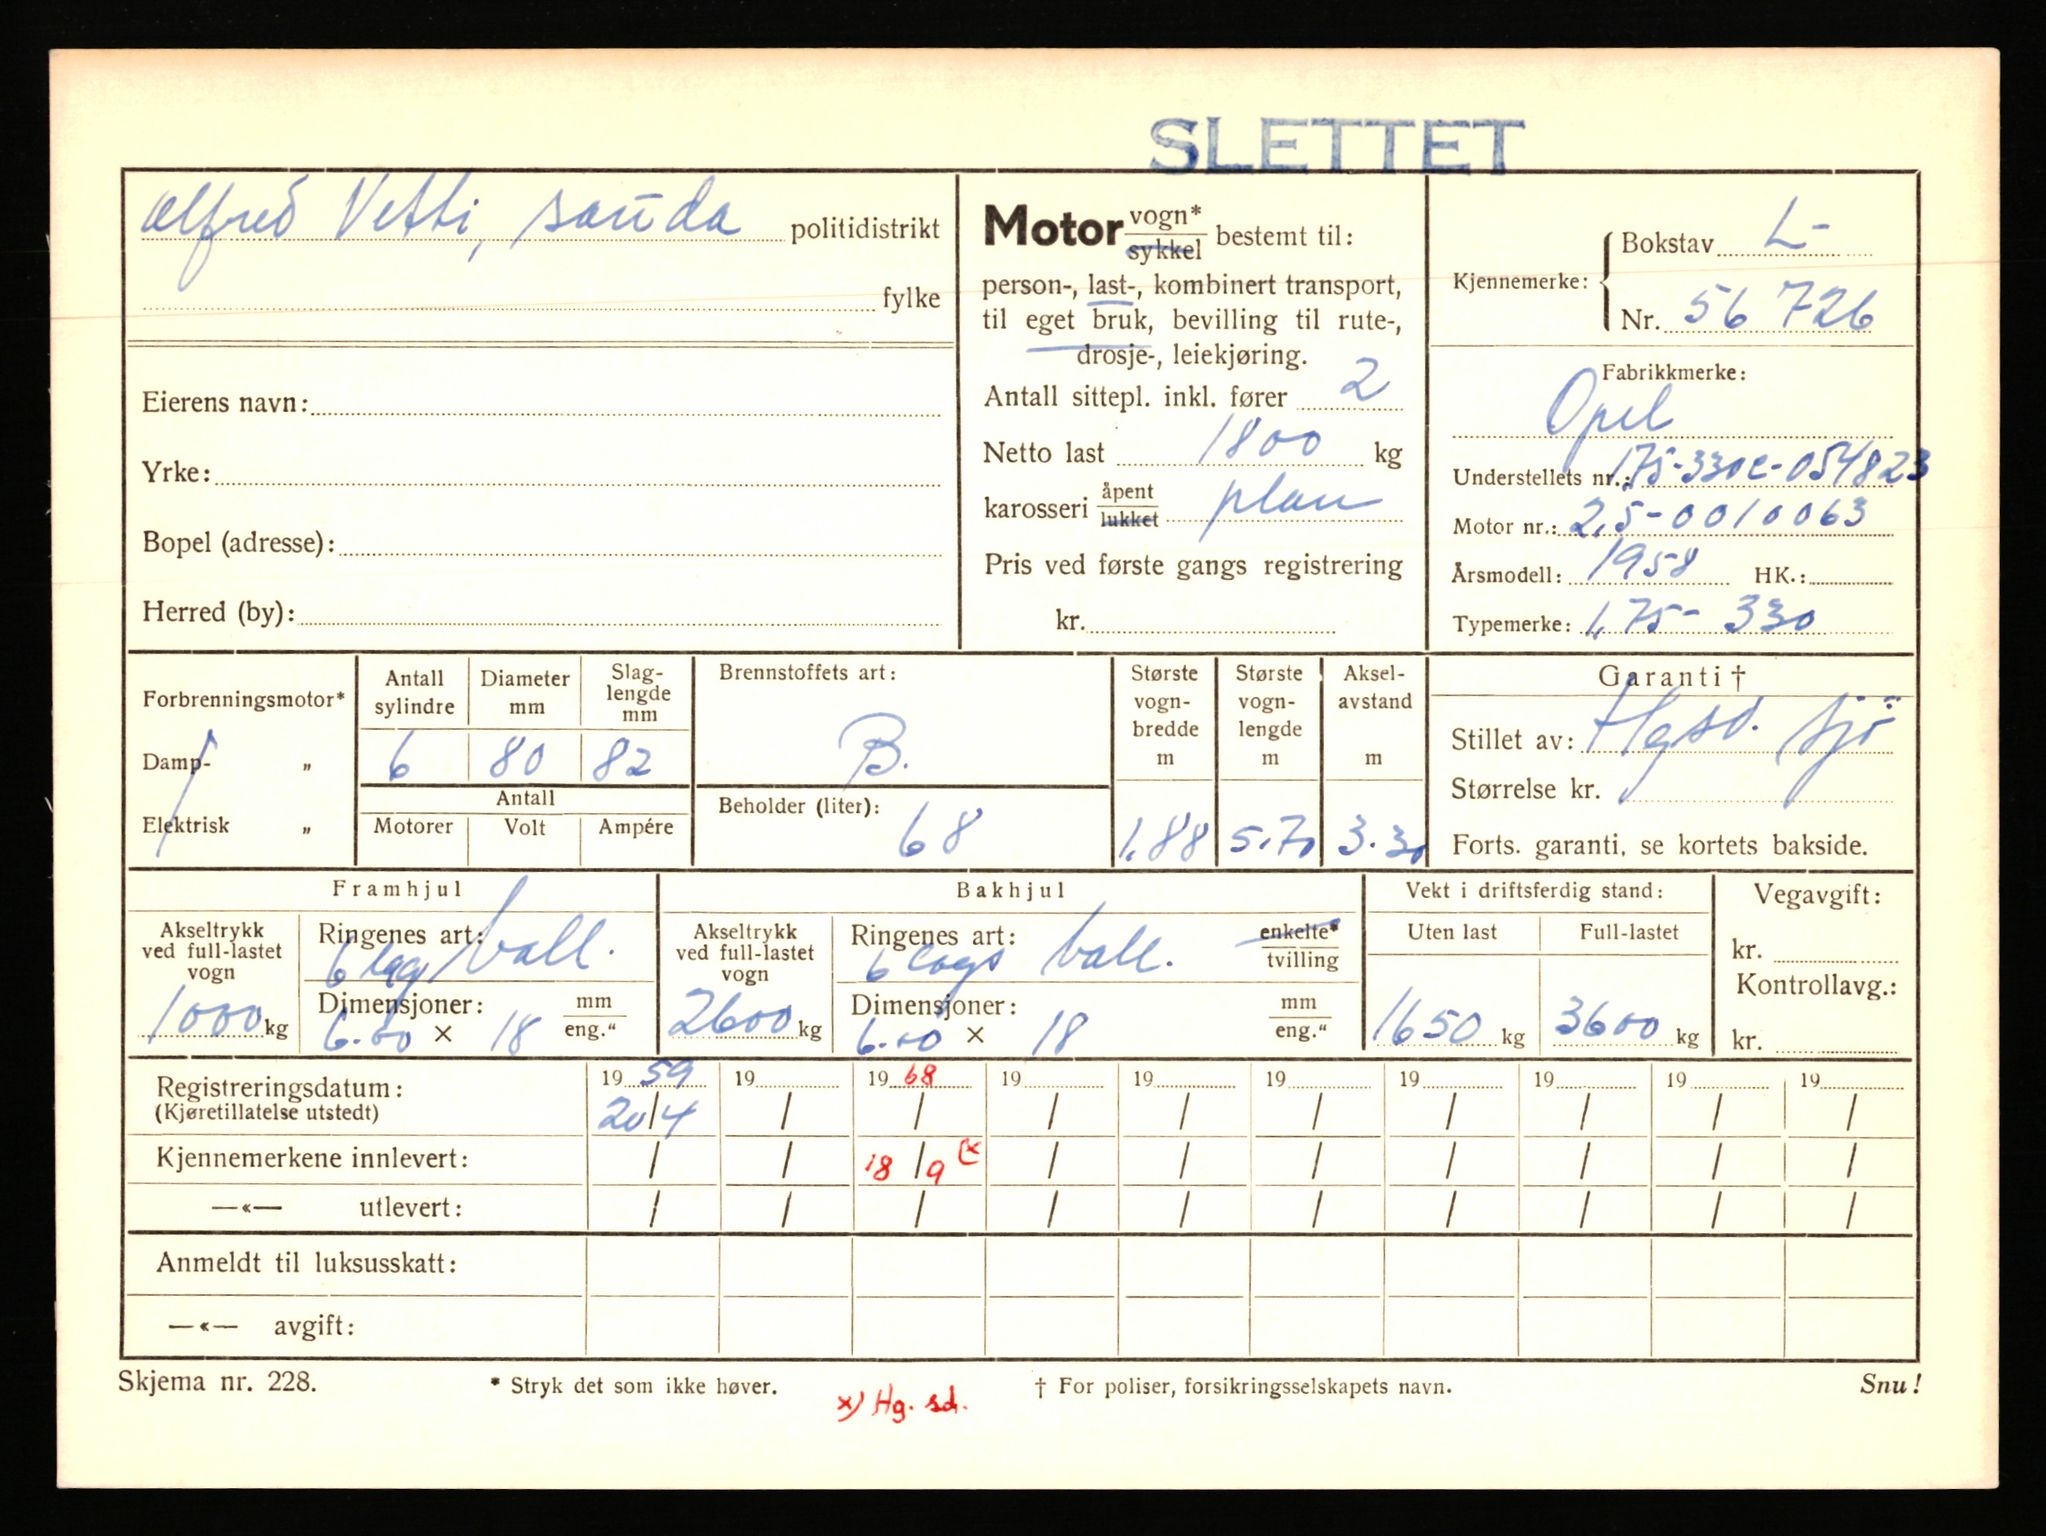 SLETTET
Alfred Vetti, Sauda politidistrikt
fylke
Eierens navn:
Yrke:
Bopel (adresse):
Herred (by):
Motor vogn* sykkel bestemt til:
person-, last-, kombinert transport,
til eget bruk, bevilling til rute-,
drosje-, leiekjøring.
Antall sittepl. inkl. fører 2
Netto last 1800 kg
karosseri åpent lukket plan
Pris ved første gangs registrering
kr.
Kjennemerke: Bokstav L-
Nr. 56726
Fabrikkmerke:
Opel
Understellets nr.: 175-330E-054823
Motor nr.: 2,5-0010063
Årsmodell: 1958 HK.:
Typemerke: 1,75-330
Forbrenningsmotor*
Damp- „
Elektrisk „
Antall sylindre Diameter mm Slag-lengde mm
6 80 82
Antall
Motorer Volt Ampére
Brennstoffets art:
B.
Beholder (liter):
68
Største vogn-bredde m Største vogn-lengde m Aksel-avstand m
1,88 5.70 3.30
Garanti †
Stillet av: Hgsd. Sjø
Størrelse kr.
Forts. garanti, se kortets bakside.
Framhjul
Akseltrykk ved full-lastet vogn
1000 kg
Ringenes art: ball.
6 lag
Dimensjoner: mm
6.00 × 18 eng.“
Bakhjul
Akseltrykk ved full-lastet vogn
2600 kg
Ringenes art: ball. enkelte*
6 lags tvilling
Dimensjoner: mm
6.00 × 18 eng.“
Vekt i driftsferdig stand:
Uten last Full-lastet
1650 kg 3600 kg
Vegavgift:
kr.
Kontrollavg.:
kr.
Registreringsdatum: 19 59 19 19 68 19 19 19 19 19 19 19
(Kjøretillatelse utstedt) 20/4 / / / / / / / / /
Kjennemerkene innlevert: / / 18/9 (x / / / / / / /
—«— utlevert: / / / / / / / / / /
Anmeldt til luksusskatt:
—«— avgift:
Skjema nr. 228. * Stryk det som ikke høver. † For poliser, forsikringsselskapets navn. Snu!
x) Hg. sd.